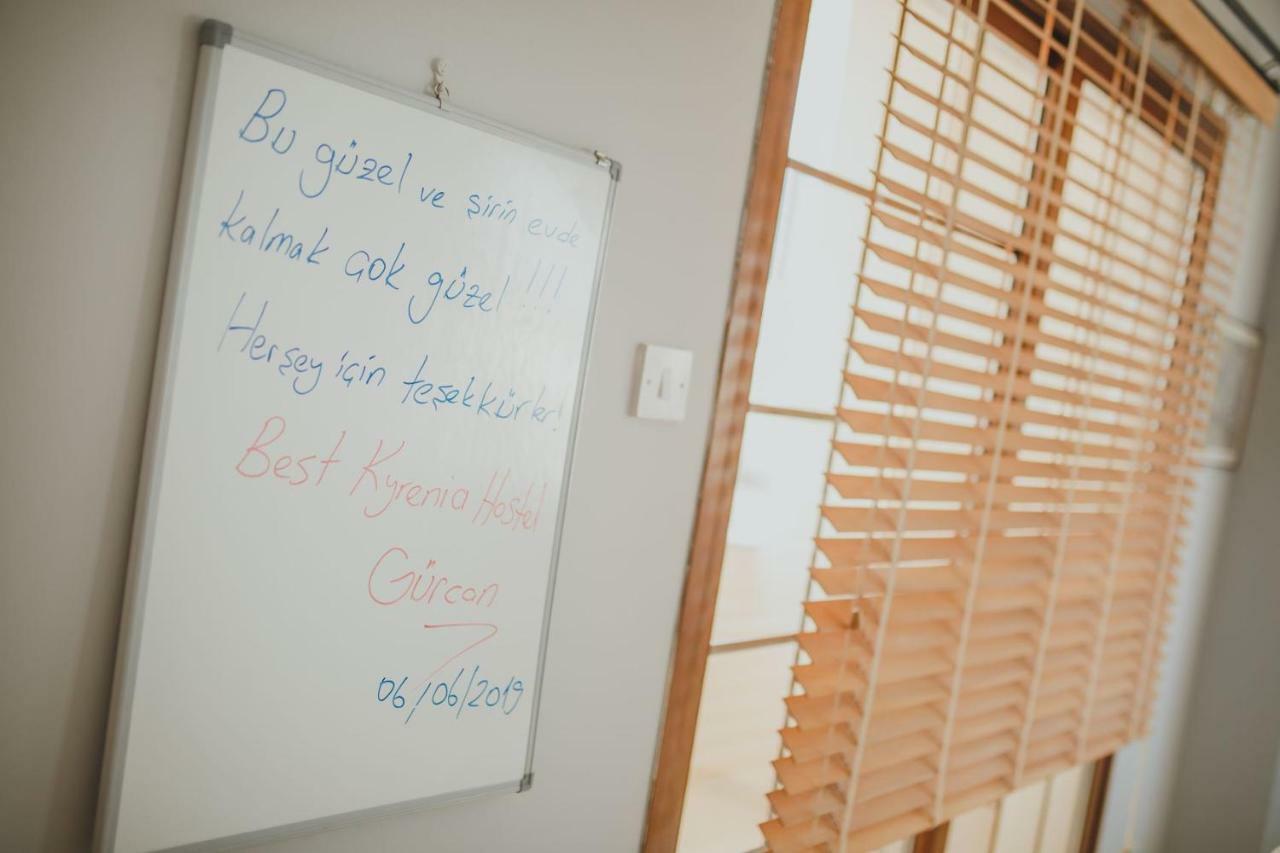 Bu güzel ve şirin evde
kalmak çok güzel !!!
Herşey için teşekkürler!
Best Kyrenia Hostel
Gürcan
06/06/2019